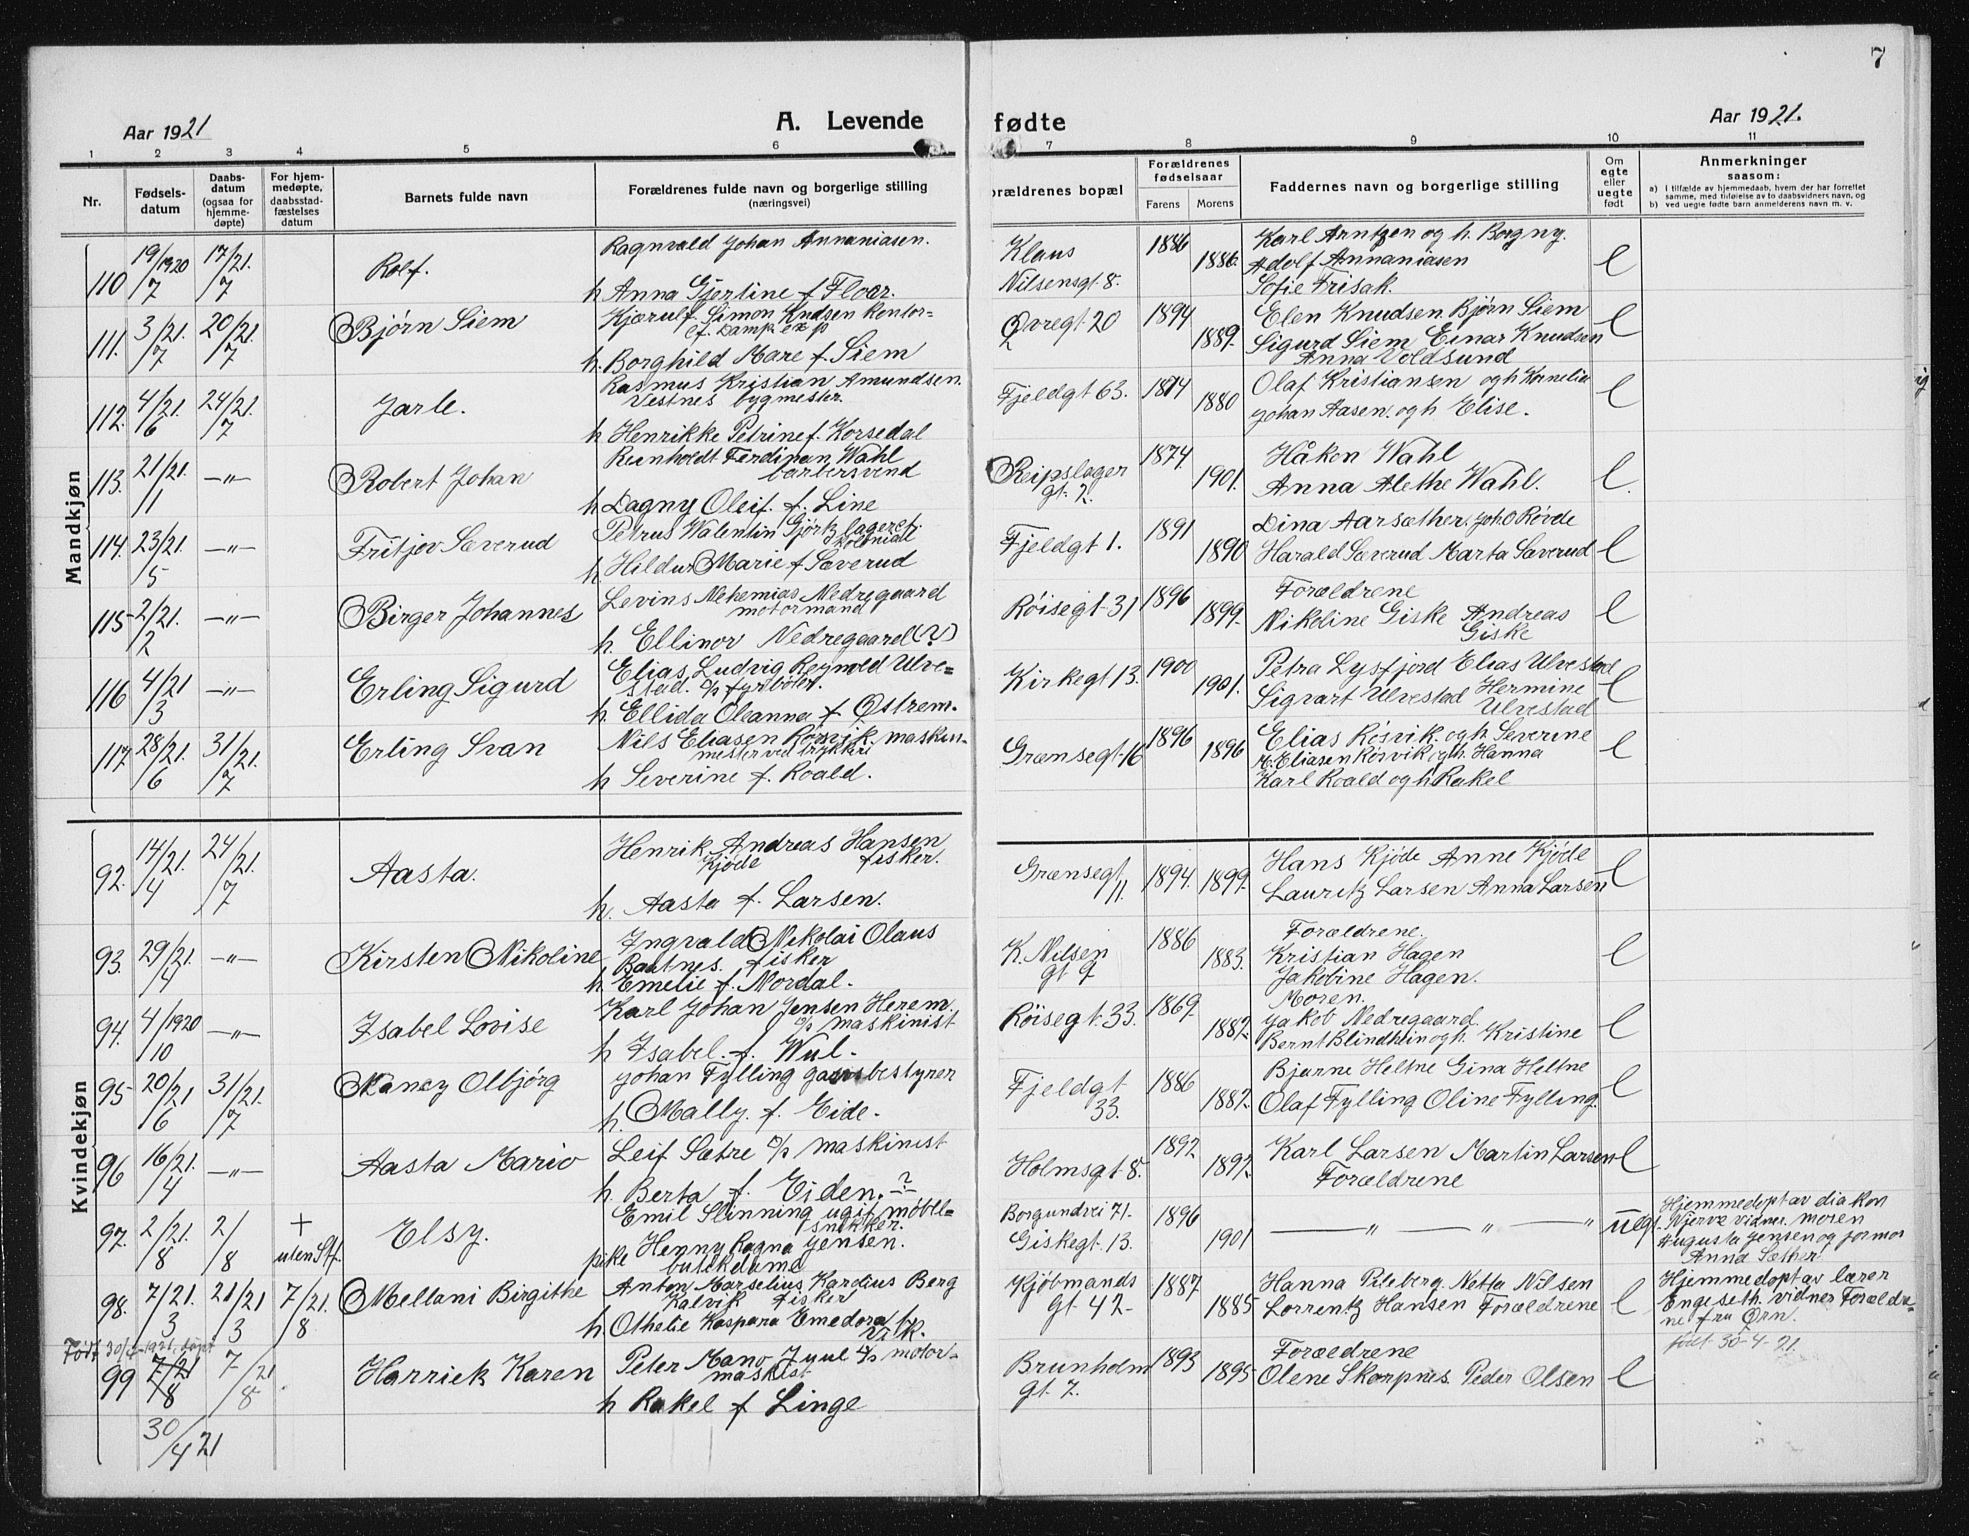 7
Aar 1921
A. Levende fødte
Aar 1921.
1 2 3 4 5 6 7 8 9 10 11
Nr.
Fødsels-
datum
Daabs-
datum
(ogsaa for
hjemme-
døpte)
For hjem-
medøpte,
daabsstad-
fæstelses
datum
Barnets fulde navn
Forældrenes fulde navn og borgerlige stilling
(næringsvei)
orældrenes bopæl
Forældrenes
fødselsaar
Farens Morens
Faddernes navn og borgerlige stilling
Om
egte
eller
uegte
født
Anmerkninger
saasom:
a) I tilfælde av hjemmedaab, hvem der har forrettet
samme, med tilføielse av to daabsvidners navn, og
b) ved uegte fødte barn anmelderens navn m. v.
Mandkjøn
110 19/7 1920 17/7 21. Rolf. Ragnvald Johan Annaniasen.
h Anna Gjertine f Floer.
Klaus
Nilsensgt. 8.
1886 1886.
Karl Arntzen og h. Borgny.
Adolf Annaniasen
Sofie Frisak.
E
111. 3/7 21. 20/7 21. Bjørn Siem Kjærulf Simon Knudsen kontor-
ef. Damp. exp
h. Borghild Mare f. Siem
Øvregt. 20 1894 1889.
Elen Knudsen Bjørn Siem
Sigurd Siem Einar Knudsen
Anna Voldsund
E
112. 4/6 21. 24/7 21. Jarle. Rasmus Kristian Amundsen.
Vestnes bygmester.
h Henrikke Petrine f. Korsedal
Fjeldgt 63. 1874 1880
Olaf Kristiansen og h Kornelia
Johan Aasen. og h Elise.
E
113. 21/11 21. —"— Robert Johan Reinholdt Ferdinan Wahl
barbersvend
h Dagny Oleif. f. Line
Reipslager
gt. 2.
1874 1901.
Håkon Wahl
Anna Alethe Wahl.
E.
114. 23/5 21. —"— Fritjov Sæverud Petrus Walentin Gjørk lageref.
kolonial
h Hildur Marie f Sæverud
Fjeldgt 1. 1891 1890
Dina Aarsæther. Joh O Røvde
Harald Sæverud Marta Sæverud
E
115- 2/2 21. —"— Birger Johannes Levins Nehemias Nedregaard
motormand
h. Ellinor Nedregaard (?)
Røisegt. 31 1896 1899.
Forældrene
Nikoline Giske Andreas
Giske
E
116 4/3 21 —"— Erling Sigurd Elias Ludvig Reynold Ulve=
stad. d/s fyrbøter.
h. Ellida Oleanna f Østrem.
Kirkegt 13. 1900 1901.
Petra Lysfjord Elias Ulvestad
Sigvart Ulvestad Hermine
Ulvestad
E
117 28/6 21. 31/7 21. Erling Svan Nils Eliasen Røsvik maskin-
mester ved Trykkri
h Severine f. Roald.
Grænsegt. 16 1896 1896
Elias Røsvik. og h Severine
E. Eliasen Røsvik og h. Hanna
Karl Roald og h Rakel
E
Kvindekjøn
92. 14/4 21. 24/7 21. Aasta. Henrik Andreas Hansen
Kjøde fisker.
h. Aasta f. Larsen.
Grænsegt.
11.
1894. 1899.
Hans Kjøde Anne Kjøde
Lauritz Larsen Anna Larsen
E
93. 29/4 21. —"— Kirsten Nikoline Ingvald Nikolai Olaus
Baatnes. fisker
h. Emelie f. Nordal.
K. Nilsen
gt 9
1886 1883.
Forældrene.
Kristian Hagen
Jakobine Hagen.
E
94. 4/10 1920 —"— Isabel Lovise Karl Johan Jensen Herem.
d/s maskinist
h Isabel. f. Wul.
Røisegt. 33. 1869. 1887.
Moren.
Jakob Nedregaard.
Bernt Blindhlin og h. Kristine
E
95- 20/6 21 31/7 21. Nancy Olbjørg Johan Fylling gaardsbestyrer
h. Mally. f. Eide.
Fjeldgt.
33.
1886 1887.
Bjarne Heltne Gina Heltne
Olaf Fylling Oline Fylling.
E
96 16/4 21. —"— Aasta Mario Leif Sætre d/s maskinist
h. Berta f. Eiden. ?
Holmsgt. 8. 1892 1897.
Karl Larsen Martin Larsen
Forældrene
E
97. 2/8 21. 2/8 + uten Stf. Elsy. Emil Slinning ugift møbel=
snikker.
pike Henny Ragna Jensen.
butikdame
Borgundvei 71.
Giskegt. 13.
1896 1901
— " — " — "
uegt.
Hjemmedøpt av diakon
Njervæ vidner. moren
Augusta Jensen og formor
Anna Sæther.
98. 7/3 21. 21/3 21 7/8 21. Mellani Birgithe Anton Marselius Kardius Berg
Kalvik fisker
h Othelie Kaspara Emedora f.
Vik.
Kjøbmands
gt. 42-
1887 1885
Hanna Pileberg. Netta Nilsen
Lorrentz Hansen Forældrene
E
Hjemmedøpt av lærer
Engeseth. vidner Forældre=
ne fru Ørn.
Født 30/4-1921, døpt
99 7/8 21 7/8 21 Harriek Karen Peter Mano Juul d/s motor-
maskist
h Rakel f Linge
Brunholm
gt. 7.
1893 1895-
Forældrene
Olene Skarpnes Peder Olsen
E
født 30-4-21.
30/4 21